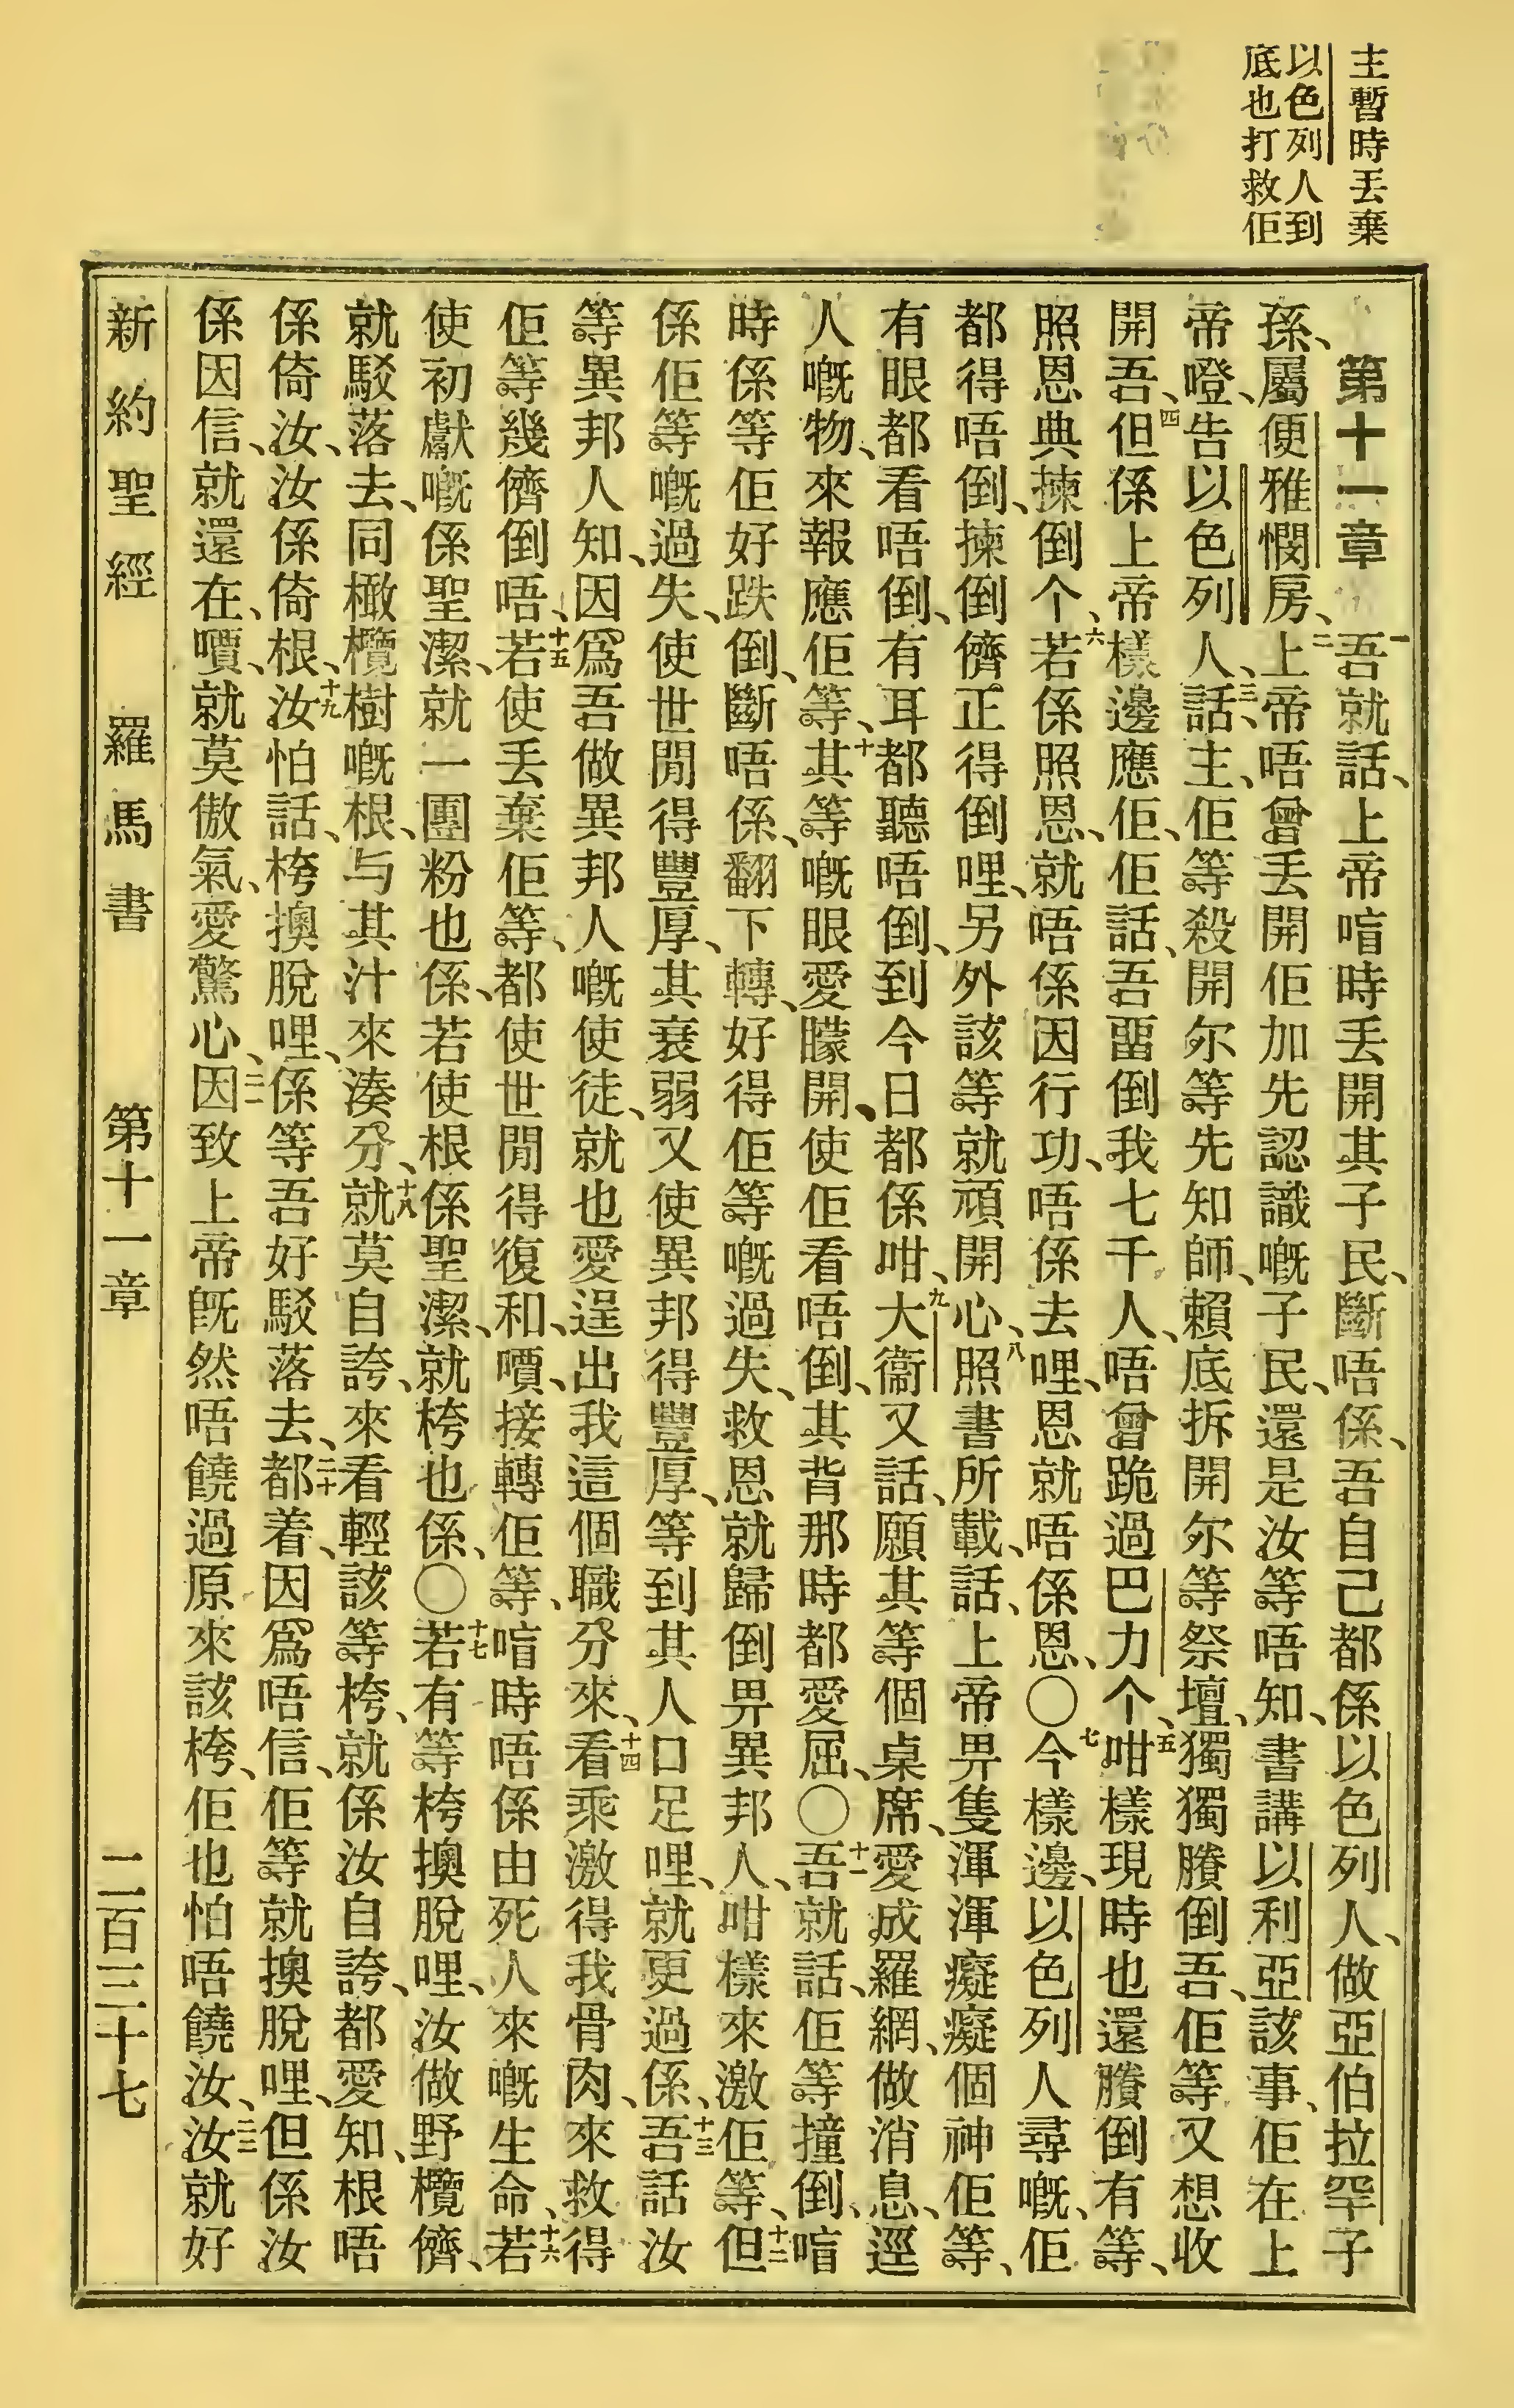 主暫時丟棄
以色列人到
底也打救佢
第十一章 一吾就話、上帝㖡時丟開其子民、斷唔係、吾自己都係以色列人、做亞伯拉罕子
孫、屬便雅憫房、二上帝唔曾丟開佢加先認識嘅子民、還是汝等唔知、書講以利亞該事、佢在上
帝嶝、告以色列人、三話、主、佢等殺開尔等先知師、賴底拆開尔等祭壇、獨獨賸倒吾、佢等又想收
開吾、四但係上帝樣邊應佢、佢話、吾畱倒我七千人、唔曾跪過巴力个、五咁樣現時也還賸倒有等、
照恩典揀倒个、六若係照恩、就唔係因行功、唔係去哩、恩就唔係恩、〇七今樣邊、以色列人尋嘅、佢
都得唔倒、揀倒儕正得倒哩、另外該等就頑開心、八照書所載、話、上帝畀隻渾渾癡癡個神佢等、
有眼都看唔倒、有耳都聽唔倒、到今日都係咁、九大衞又話、願其等個桌席、愛成羅網、做消息、逕
人嘅物、來報應佢等、十其等嘅眼愛矇開、使佢看唔倒、其背那時都愛屈、〇十一吾就話、佢等撞倒、㖡
時係等佢好跌倒、斷唔係、翻下轉、好得佢等嘅過失、救恩就歸倒畀異邦人、咁樣來激佢等、十二但
係佢等嘅過失、使世閒得豐厚、其衰弱又使異邦得豐厚、等到其人口足哩、就更過係、十三吾話汝
等異邦人知、因爲吾做異邦人嘅使徒、就也愛逞出我這個職分來、十四看乘激得我骨肉、來救得
佢等幾儕倒唔、十五若使丟棄佢等、都使世閒得復和、嘳、接轉佢等、㖡時唔係由死人來嘅生命、十六若
使初獻嘅係聖潔、就一團粉也係、若使根係聖潔、就桍也係、〇十七若有等桍擙脫哩、汝做野欖儕、
就駁落去、同橄欖樹嘅根、与其汁來湊分、十八就莫自誇、來看輕該等桍、就係汝自誇、都愛知、根唔
係倚汝、汝係倚根、十九汝怕話、桍擙脫哩、係等吾好駁落去、二十都着、因爲唔信、佢等就擙脫哩、但係汝
係因信、就還在、嘳、就莫傲氣、愛驚心、二一因致上帝旣然唔饒過原來該桍、佢也怕唔饒汝、二二汝就好
新約聖經 羅馬書 第十一章 二百三十七